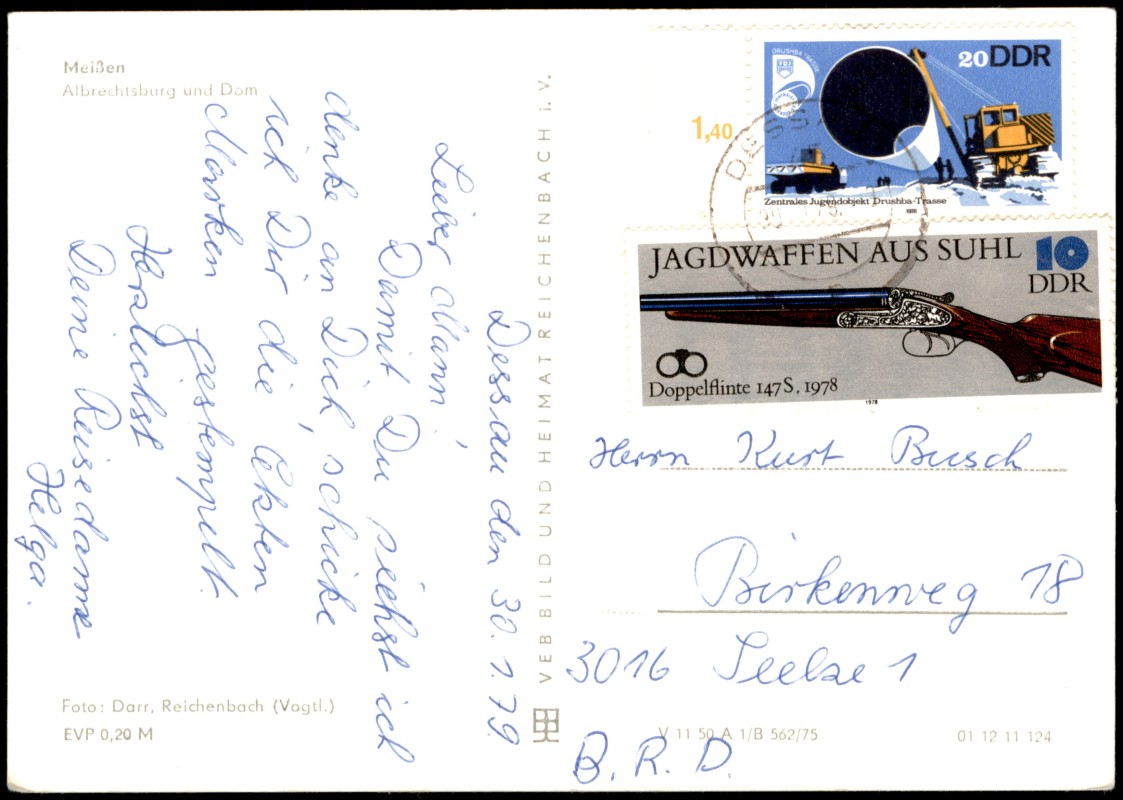 Meißen
Albrechtsburg und Dom
Dessau den 30.1.79.
Lieber Mann!
Damit Du siehst ich
denke an Dich, schicke
ich Dir die
Marken gestempelt.
Herzlichst
Deine Reisedame
Helga.
Foto: Darr, Reichenbach (Vogtl.)
EVP 0,20 M
VEB BILD UND HEIMAT REICHENBACH i. V.
1,40
DRUSHBA-TRASSE
FDJ
20 DDR
Zentrales Jugendobjekt Drushba-Trasse
1978
DESSAU
JAGDWAFFEN AUS SUHL
10
DDR
Doppelflinte 147 S, 1978
1978
Herrn Kurt Busch
Birkenweg 18
3016 Seelze 1
B. R. D.
V 11 50 A 1/B 562/75
01 12 11 124